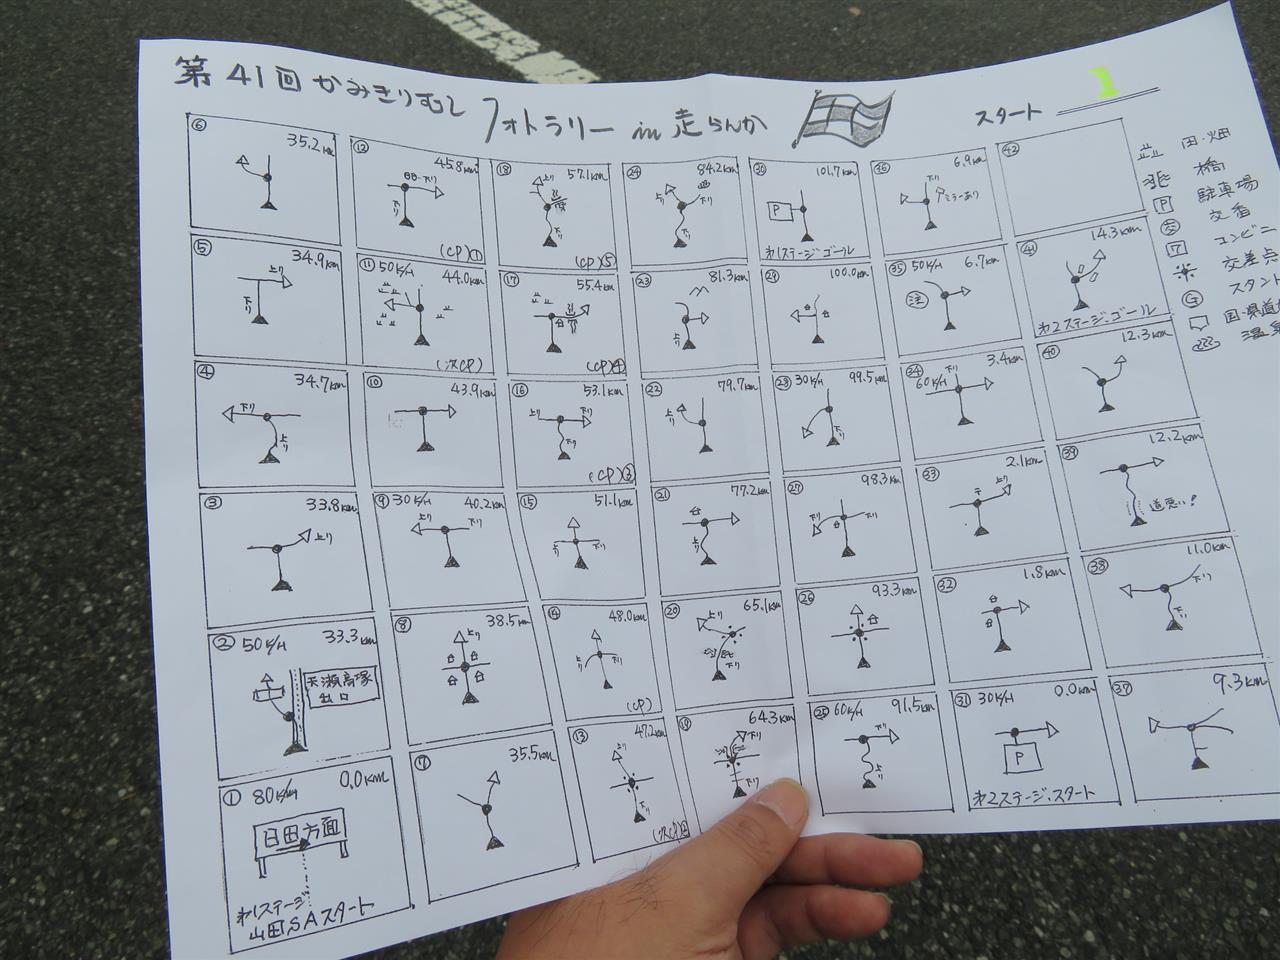 第41回かみきりむし フォトラリー in 走らんか
スタート 1
① 80K/H 0.0Km
日田方面
オ1ステージ
山田SAスタート
② 50K/H 33.3km
天瀬高塚
出口
③ 33.8km
上り
④ 34.7km
下り
上り
⑤ 34.9km
上り
下り
⑥ 35.2km
⑦ 35.5km
⑧ 38.5km
上り
⑨ 30K/H 40.2km
上り 下り
⑩ 43.9km
⑪ 50K/H 44.0km
(次CP)
⑫ 45.8km
下り
下り
(CP)①
⑬ 47.2km
上り
下り
⑭ 48.0km
上り 下り
(CP)
⑮ 51.1km
上り 下り
⑯ 53.1km
上り 下り
下り
(CP)③
⑰ 55.4km
(CP)④
⑱ 57.1km
上り
下り
(CP)⑤
⑲ 64.3km
下り
下り
⑳ 65.1km
上り
下り
㉑ 77.2km
上り
㉒ 79.7km
上り
㉓ 81.3km
下り
㉔ 84.2km
上り 下り
下り
㉕ 60K/H 91.5km
下り
上り
㉖ 93.3km
㉗ 98.3km
下り 下り
㉘ 30K/H 99.5km
下り
㉙ 100.0km
㉚ 101.7km
P
オ1ステージゴール
㉛ 30K/H 0.0km
P
オ2ステージ・スタート
㉜ 1.8km
㉝ 2.1km
上り
㉞ 3.4km
60K/H 下り
㉟ 50K/H 6.7km
注
㊱ 6.9km
下り
ミラーあり
㊲ 9.3km
㊳ 11.0km
下り
下り
㊴ 12.2km
道悪い!
㊵ 12.3km
㊶ 14.3km
オ2ステージ・ゴール
㊷
田・畑
橋
P 駐車場
交 交番
コンビニ
交差点
G スタンド
国・県道
温泉